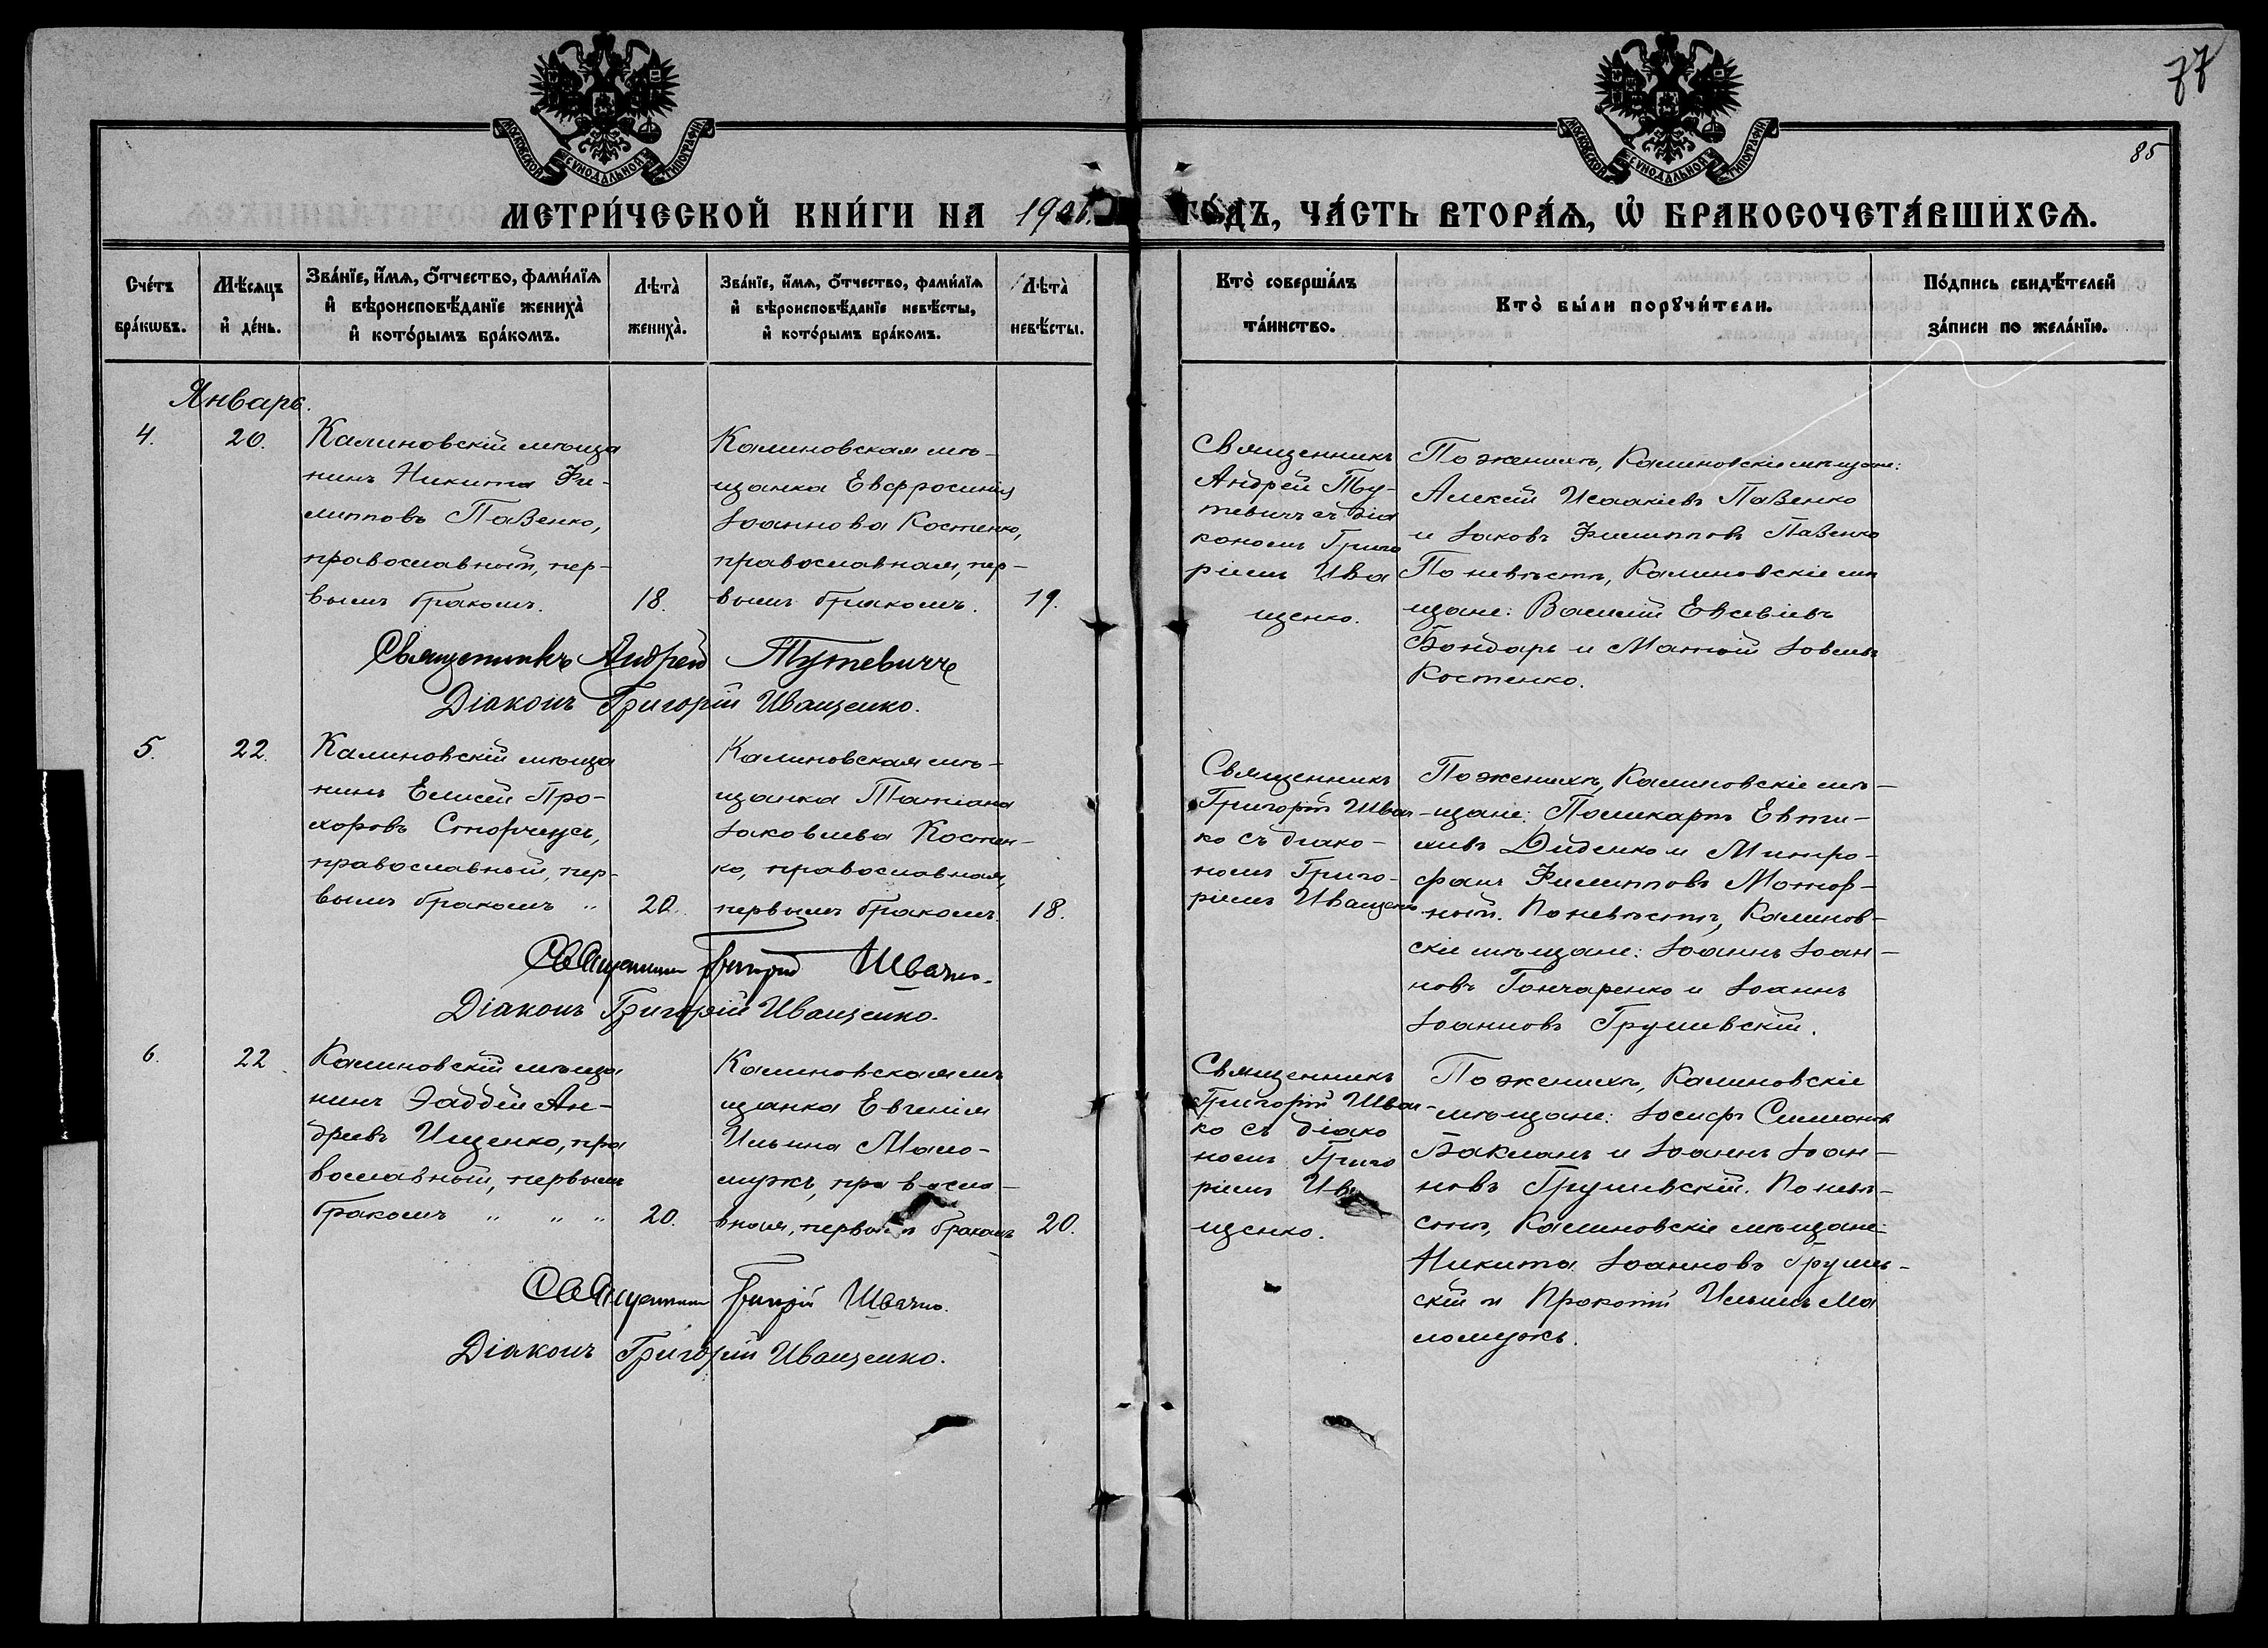 77
85
МОСКОВСКОЙ СѴНОДАЛЬНОЙ ТИПОГРАФІИ
МОСКОВСКОЙ СѴНОДАЛЬНОЙ ТИПОГРАФІИ
МЕТРИ́ЧЕСКОЙ КНИ́ГИ НА 190 ГО́ДЪ, ЧА́СТЬ ВТОРА́Ѧ, Ѽ БРАКОСОЧЕТА́ВШИХСѦ.
Сче́тъ
бра́кѡвъ.
Мѣ́сѧцъ
и҆ де́нь.
Зва́нїе, и҆́мѧ, ѻ҆́тчество, фами́лїѧ
и҆ вѣроисповѣ́данїе жениха̀
и҆ кото́рымъ бра́комъ.
Лѣта̀
жениха̀.
Зва́нїе, и҆́мѧ, ѻ҆́тчество, фами́лїѧ
и҆ вѣроисповѣ́данїе невѣ́сты,
и҆ кото́рымъ бра́комъ.
Лѣта̀
невѣ́сты.
Кто̀ соверша́лъ
та́инство.
Кто̀ бы́ли порꙋчи́тели.
По́дпись свидѣ́телей
за́писи по жела́нїю.
Январь.
4.
20.
Калиновскій мѣща
нинъ Никита Фи-
липповъ Павенко,
православный, пер-
вымъ бракомъ.
18.
Калиновская мѣ-
щанка Евфросинія
Іоаннова Костенко,
православная, пер-
вымъ бракомъ.
19.
Священникъ
Андрей Ту-
тевичъ съ діа
кономъ Григо
ріемъ Ива
щенко.
По женихѣ, Калиновскіе мѣщане:
Алексій Исаакіевъ Павенко
и Іаковъ Филипповъ Павенко
По невѣстѣ, Калиновскіе мѣ
щане: Василій Евсевіевъ
Бондарь и Матѳій Іовлевъ
Костенко.
Священникъ Андрей Тутевичъ
Діаконъ Григорій Иващенко.
5.
22.
Калиновскій мѣща
нинъ Елисей Про-
хоровъ Сторчеусъ,
православный, пер-
вымъ бракомъ "
20.
Калиновская мѣ-
щанка Татіана
Іаковлева Костен-
ко, православная,
первымъ бракомъ.
18.
Священникъ
Григорій Швач-
ко съ діако-
номъ Григо-
ріемъ Иващенко
По женихѣ, Калиновскіе мѣ-
щане: Поликарпъ Евти-
хіевъ Диденко и Митро-
фанъ Филипповъ
По невѣстѣ, Калинов-
скіе мѣщане: Іоаннъ Іоан-
новъ Гончаренко и Іоаннъ
Іоанновъ Грушевскій.
Священникъ Григорій Швачко.
Діаконъ Григорій Иващенко.
6.
22.
Калиновскій мѣща
нинъ Ѳаддей Ан-
дреевъ Ищенко, пра
вославный, первымъ
бракомъ " " "
20.
Калиновская мѣ
щанка Евгенія
Ильина Мало-
мужъ, правосла-
вная, первымъ бракомъ
20.
Священникъ
Григорій Швач-
ко съ діако
номъ Григо
ріемъ Ива
щенко.
По женихѣ, Калиновскіе
мѣщане: Іосифъ Симоновъ
Бакланъ и Іоаннъ Іоан-
новъ Грушевскій. По невѣ-
стѣ, Калиновскіе мѣщане:
Никита Іоанновъ Грушев-
скій и Прокопій Ильинъ Ма
ломужъ.
Священникъ Григорій Швачко.
Діаконъ Григорій Иващенко.